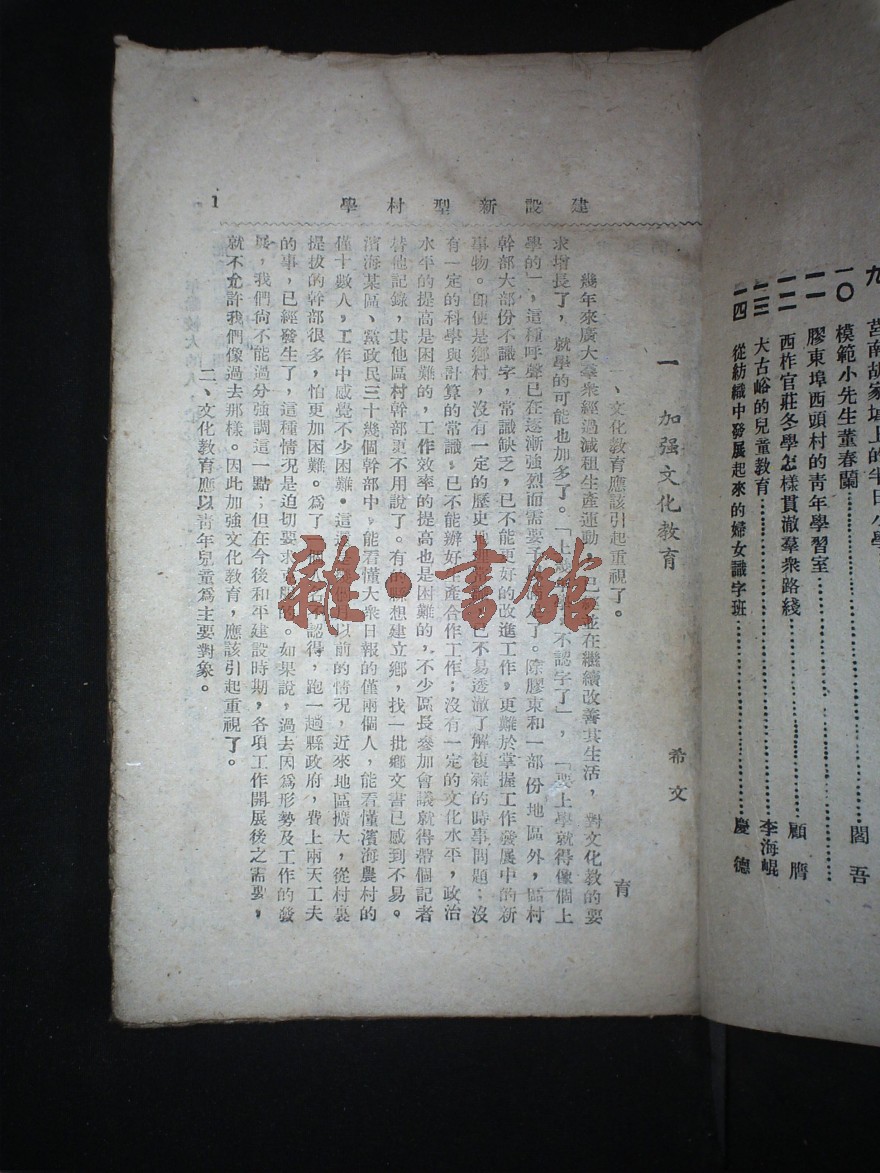 九 莒南胡家
一〇 模範小先生董春蘭……閻吾
一一 膠東埠西頭村的青年學習室……
一二 西柞官莊冬學怎樣貫澈羣衆路綫……顧膺
一三 大古峪的兒童教育……李海崐
一四 從紡織中發展起來的婦女識字班……慶德
建設新型村學
1
一 加强文化教育
希文
一、文化教育應該引起重視了。
育
幾年來廣大羣衆經過減租生產運動,已 並在繼續改善其生活,對文化教的要
求增長了,就學的可能也加多了。「上 不認字了」,「要上學就得像個上
學的」,這種呼聲已在逐漸强烈而需要予 定了。除膠東和一部份地區外,區村
幹部大部份不識字,常識缺乏,已不能更好的改進工作,更難於掌握工作發展中的新
事物。即使是鄉村,沒有一定的歷史地理 已不易透澈了解複雜的時事問題;沒
有一定的科學與計算的常識,已不能辦好生產合作工作;沒有一定的文化水平,政治
水平的提高是困難的,工作效率的提高也是困難的,不少區長參加會議就得帶個記者
替他記錄,其他區村幹部更不用說了。有的縣想建立鄉,找一批鄉文書已感到不易。
濱海某區、黨政民三十幾個幹部中,能看懂大衆日報的僅兩個人,能看懂濱海農村的
僅十數人,工作中感覺不少困難。這 個月以前的情况,近來地區擴大,從村裏
提拔的幹部很多,怕更加困難。爲了一個 不認得,跑一趟縣政府,費上兩天工夫
的事,已經發生了,這種情况是迫切要求 的。如果說,過去因爲形勢及工作的發
展,我們尙不能過分强調這一點;但在今後和平建設時期,各項工作開展後之需要,
就不允許我們像過去那樣。因此加強文化教育,應該引起重視了。
二、文化教育應以靑年兒童爲主要對象。
雜·書館